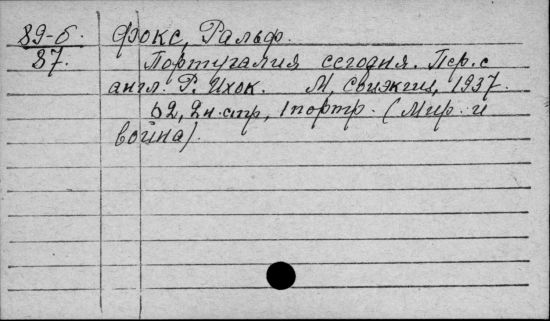 89-б. Фокс, Ральф.
87. Португалия сегодня. Пер. с
англ. Р. Ихок. М, 1937.
62, 2 н. стр, 1 портр. (Мир и
война).